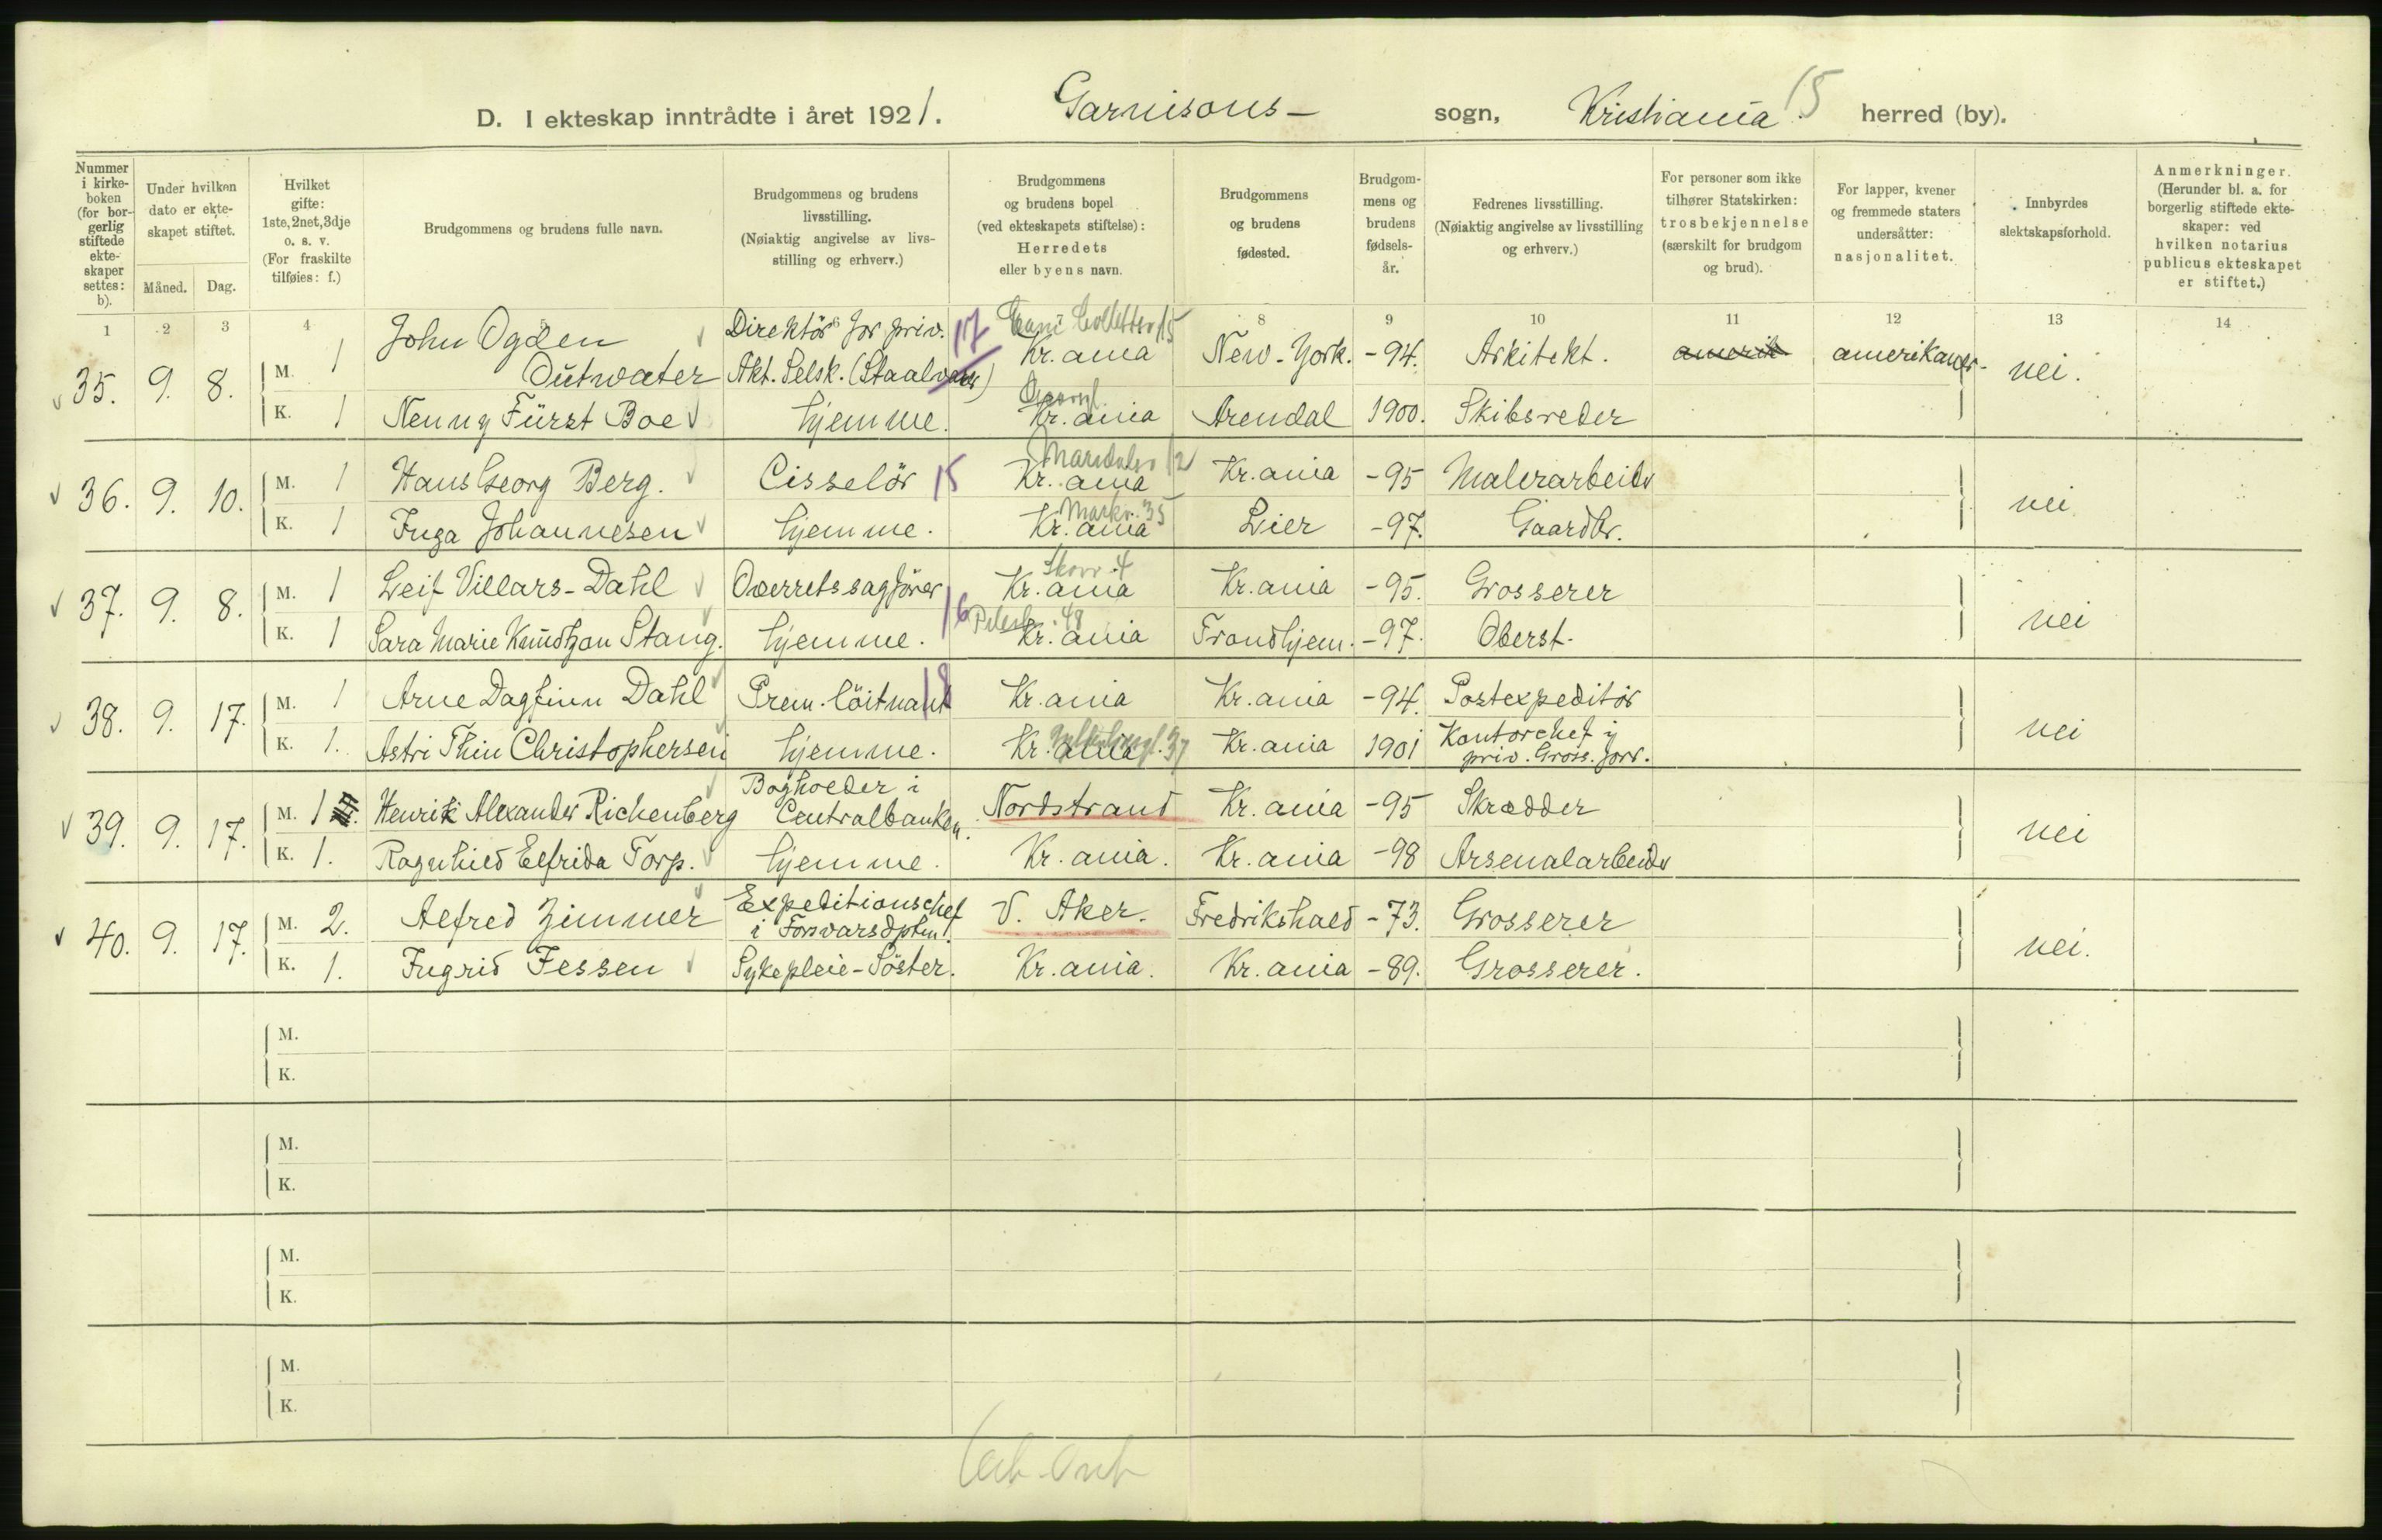 D. I ekteskap inntrådte i året 1921. Garnisons- sogn, Kristiania 15 herred (by).
Nummer i kirke-boken (for bor-gerlig stiftede ekte-skaper settes: b).
Under hvilken dato er ekte-skapet stiftet.
Måned. Dag.
Hvilket gifte: 1ste, 2net, 3dje o. s. v. (For fraskilte tilføies: f.)
Brudgommens og brudens fulle navn.
Brudgommens og brudens livsstilling. (Nøiaktig angivelse av livs-stilling og erhverv.)
Brudgommens og brudens bopel (ved ekteskapets stiftelse): Herredets eller byens navn.
Brudgommens og brudens fødested.
Brudgom-mens og brudens fødsels-år.
Fedrenes livsstilling. (Nøiaktig angivelse av livsstilling og erhverv.)
For personer som ikke tilhører Statskirken: trosbekjennelse (særskilt for brudgom og brud).
For lapper, kvener og fremmede staters undersåtter: nasjonalitet.
Innbyrdes slektskapsforhold.
Anmerkninger. (Herunder bl. a. for borgerlig stiftede ekte-skaper: ved hvilken notarius publicus ekteskapet er stiftet.)
1 2 3 4 5 6 8 9 10 11 12 13 14
35. 9. 8. M. 1 John Ogden Outwater Direktör for priv. Akt. Selsk. (Staalvarer) 17 Kr.ania New-York. -94. Arkitekt. amerik amerikaner. nei.
K. 1 Nenny Fürst Boe hjemme. Kr.ania Arendal 1900. Skibsreder
36. 9. 10. M. 1 Hans Georg Berg. Cisselör 15 Maridalsv 12 Kr.ania Kr.ania -95 Malerarbeider nei
K. 1 Inga Johannesen hjemme. Markv. 35 Kr.ania Lier -97. Gaardbr.
37. 9. 8. M. 1 Leif Villars-Dahl Overretssagförer 16 Kr.ania Kr.ania -95. Grosserer nei
K. 1 Sara Marie Knudtzon Stang. hjemme. 48 Kr.ania Trondhjem. -97. Oberst.
38. 9. 17. M. 1 Arne Dagfinn Dahl Prem. löitnant 18 Kr.ania Kr.ania -94. Postexpeditör nei
K. 1. Astri Thin Christophersen hjemme. Kr.ania 37 Kr.ania 1901 Kontorchef i priv. Gross. forr.
39. 9. 17. M. 1 Henrik Alexander Richenberg Bogholder i Centralbanken. Nordstrand Kr.ania -95 Skrædder nei
K. 1. Ragnhild Elfrida Torp. hjemme. Kr.ania. Kr.ania -98 Arsenalarbeider
40. 9. 17. M. 2. Alfred Zimmer Expeditionschef i Forsvarsdptem. V. Aker. Fredrikshald -73. Grosserer nei.
K. 1. Ingrid Fessen Sykepleie-Söster. Kr.ania. Kr.ania -89. Grosserer.
M.
K.
M.
K.
M.
K.
M.
K.